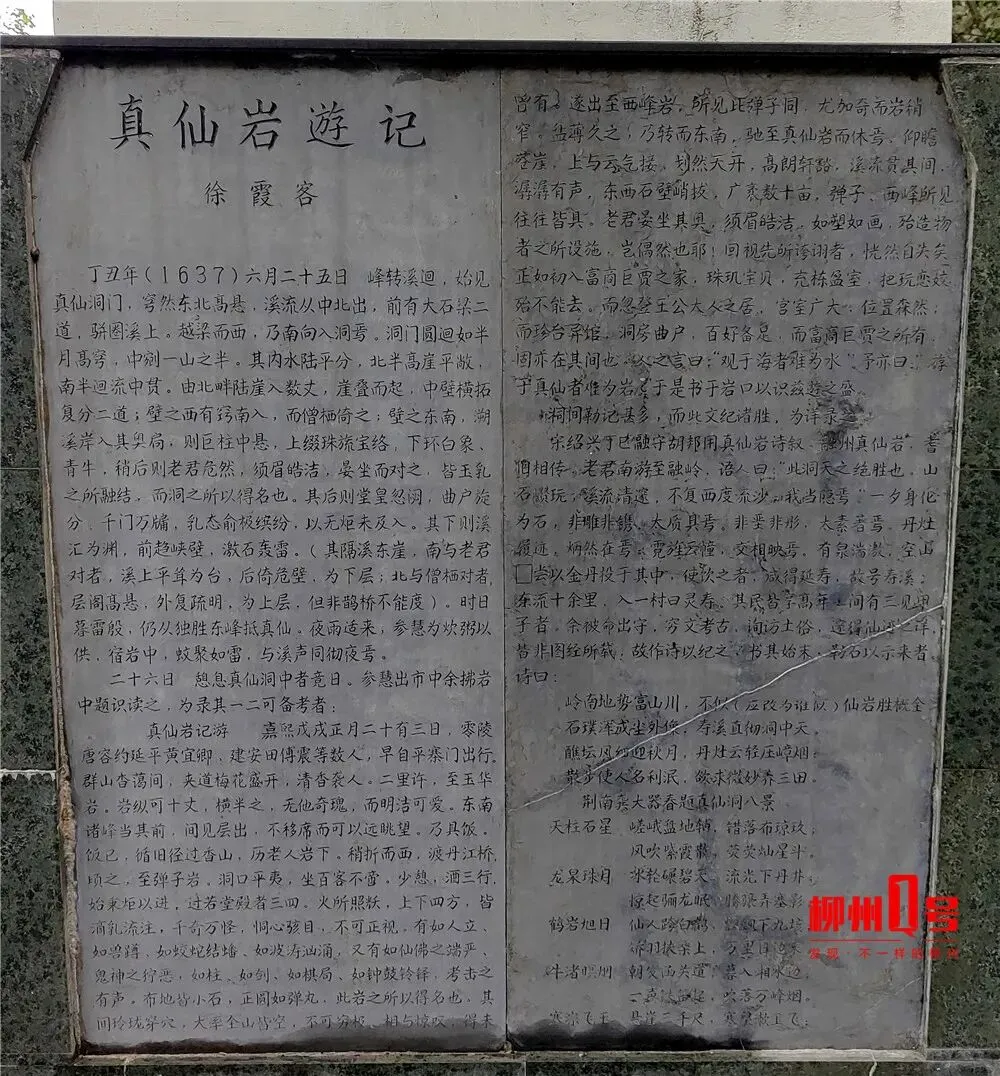 真仙岩游记
徐霞客
丁丑年（1637）六月二十五日 峰转溪迴，始见
真仙洞门，穹然东北高悬，溪流从中北出，前有大石梁二
道，骈圈溪上。越梁而西，乃南向入洞焉。洞门圆迴如半
月高穹，中剜一山之半。其内水陆平分，北半高崖平敞，
南半迴流中贯。由北畔陆崖入数丈，崖叠而起，中壁横拓
复分二道；壁之西有窍南入，而僧栖倚之；壁之东南，溯
溪岸入其奥局，则巨柱中悬，上缀珠流宝络，下环白象、
青牛，稍后则老君危然，须眉皓洁，晏坐而对之，皆玉乳
之所融结，而洞之所以得名也。其后则堂皇忽闷，曲户旋
分，千门万牖，乳态俞极缤纷，以无炬未及入。其下则溪
汇为渊，前趋峡壁，激石轰雷。（其隔溪东崖，南与老君
对者，溪上平耸为台，后倚危壁，为下层；北与僧栖对者，
层阁高悬，外复疏明，为上层，但非鹊桥不能度）。时日
暮雷殷，仍从独胜东峰抵真仙。夜雨适来，参慧为炊粥以
供，宿岩中，蚊聚如雷，与溪声同彻夜焉。
二十六日 憩息真仙洞中者竟日。参慧出市中余拂岩
中题识读之，为录其一二可备考者：
真仙岩记游 嘉熙戊戌正月二十有三日，零陵
唐容约延平黄宜卿，建安田傅震等数人，早自平寨门出行。
群山杳蔼间，夹道梅花盛开，清香袭人。二里许，至玉华
岩。岩纵可十丈，横半之，无他奇瑰，而明洁可爱。东南
诸峰当其前，间见层出，不移席而可以远眺望。乃具饭。
饭已，循旧径过香山，历老人岩下。稍折而西，渡丹江桥，
顷之，至弹子岩。洞口平夷，坐百客不啻。少憩，酒三行，
始束炬以进，过若堂殿者三四。火所照烁，上下四方，皆
滴乳流注，千奇万怪，恫心骇目，不可正视，有如人立、
如兽蹲、如蛟蛇结蟠、如波涛汹涌，又有如仙佛之端严，
鬼神之狞恶，如柱、如剑、如棋局、如钟鼓铃铎，考击之
有声。布地皆小石，正圆如弹丸，此岩之所以得名也，其
间玲珑穿穴，大率全山皆空，不可穷极，相与惊叹，得未
曾有。遂出至西峰岩，所见比弹子同，尤加奇而岩稍
窄。盘薄久之，乃转而东南，驰至真仙岩而休焉。仰瞻
苍崖，上与云气接，划然天开，高朗轩豁，溪流贯其间，
潺潺有声，东西石壁峭拔，广袤数十亩，弹子、西峰所见
往往皆具。老君晏坐其奥，须眉皓洁，如塑如画，殆造物
者之所设施，岂偶然也耶！回视先所夸诩者，恍然自失矣
正如初入富商巨贾之家，珠玑宝贝，充栋盈室，把玩恋
殆不能去。而忽登王公大人之居，宫室广大，位置森然；
而珍台异馆，洞房曲户，百好备足，而富商巨贾之所有，
固亦在其间也。之言曰："观于海者难为水"予亦曰："游
于真仙者难为岩于是书于岩口以识兹游之盛。
洞间勒记甚多，而此文纪诸胜，为详录
宋绍兴丁巳融守胡邦用真仙岩诗叙：融州真仙岩，耆
旧相传。老君南游至融岭，语人曰："此洞天之绝胜也，山
石，溪流清邃，不复西度流沙，我当隐焉"一夕身化
为石，非雕非镌，太质具焉。非垩非彤，太素著焉。丹灶
履迹，炳然在焉；霓旌云幢，交相映焉。有泉湍激，空山
□尝以金丹投于其中，使饮之者，咸得延寿，故号寿溪；
东流十余里，入一村曰灵寿。其民皆享高年，间有三见甲
子者，余被命出守，穷文考古，询访土俗，遂得仙迹之详，
皆非图经所载，故作诗以纪之，书其始末，勒石以示来者
诗曰：
岭南地势富山川，不似（应改为谁似）仙岩胜概全
石璞浑成尘外像，寿溪直彻洞中天。
醮坛风细迎秋月，丹灶云轻压嶂烟。
散步使人名利泯，欲求微妙养三田。
荆南龚大器春题真仙洞八景
天柱石星 嵯峨盘地轴，错落布琼玖，
风吹紫霞散，荧荧灿星斗。
龙泉珠月 冰轮碾碧天，流光下丹井，
惊起骊龙眠，塞影
鹤岩旭日 仙人跨白鹤，下九垓
日边来
牛渚暝烟 朝发函关道，暮入湘水边，
一，吹落万峰烟。
寒淙飞玉 悬崖三千尺，寒泉漱玉飞，
柳州Q号
发现 不一样的柳州